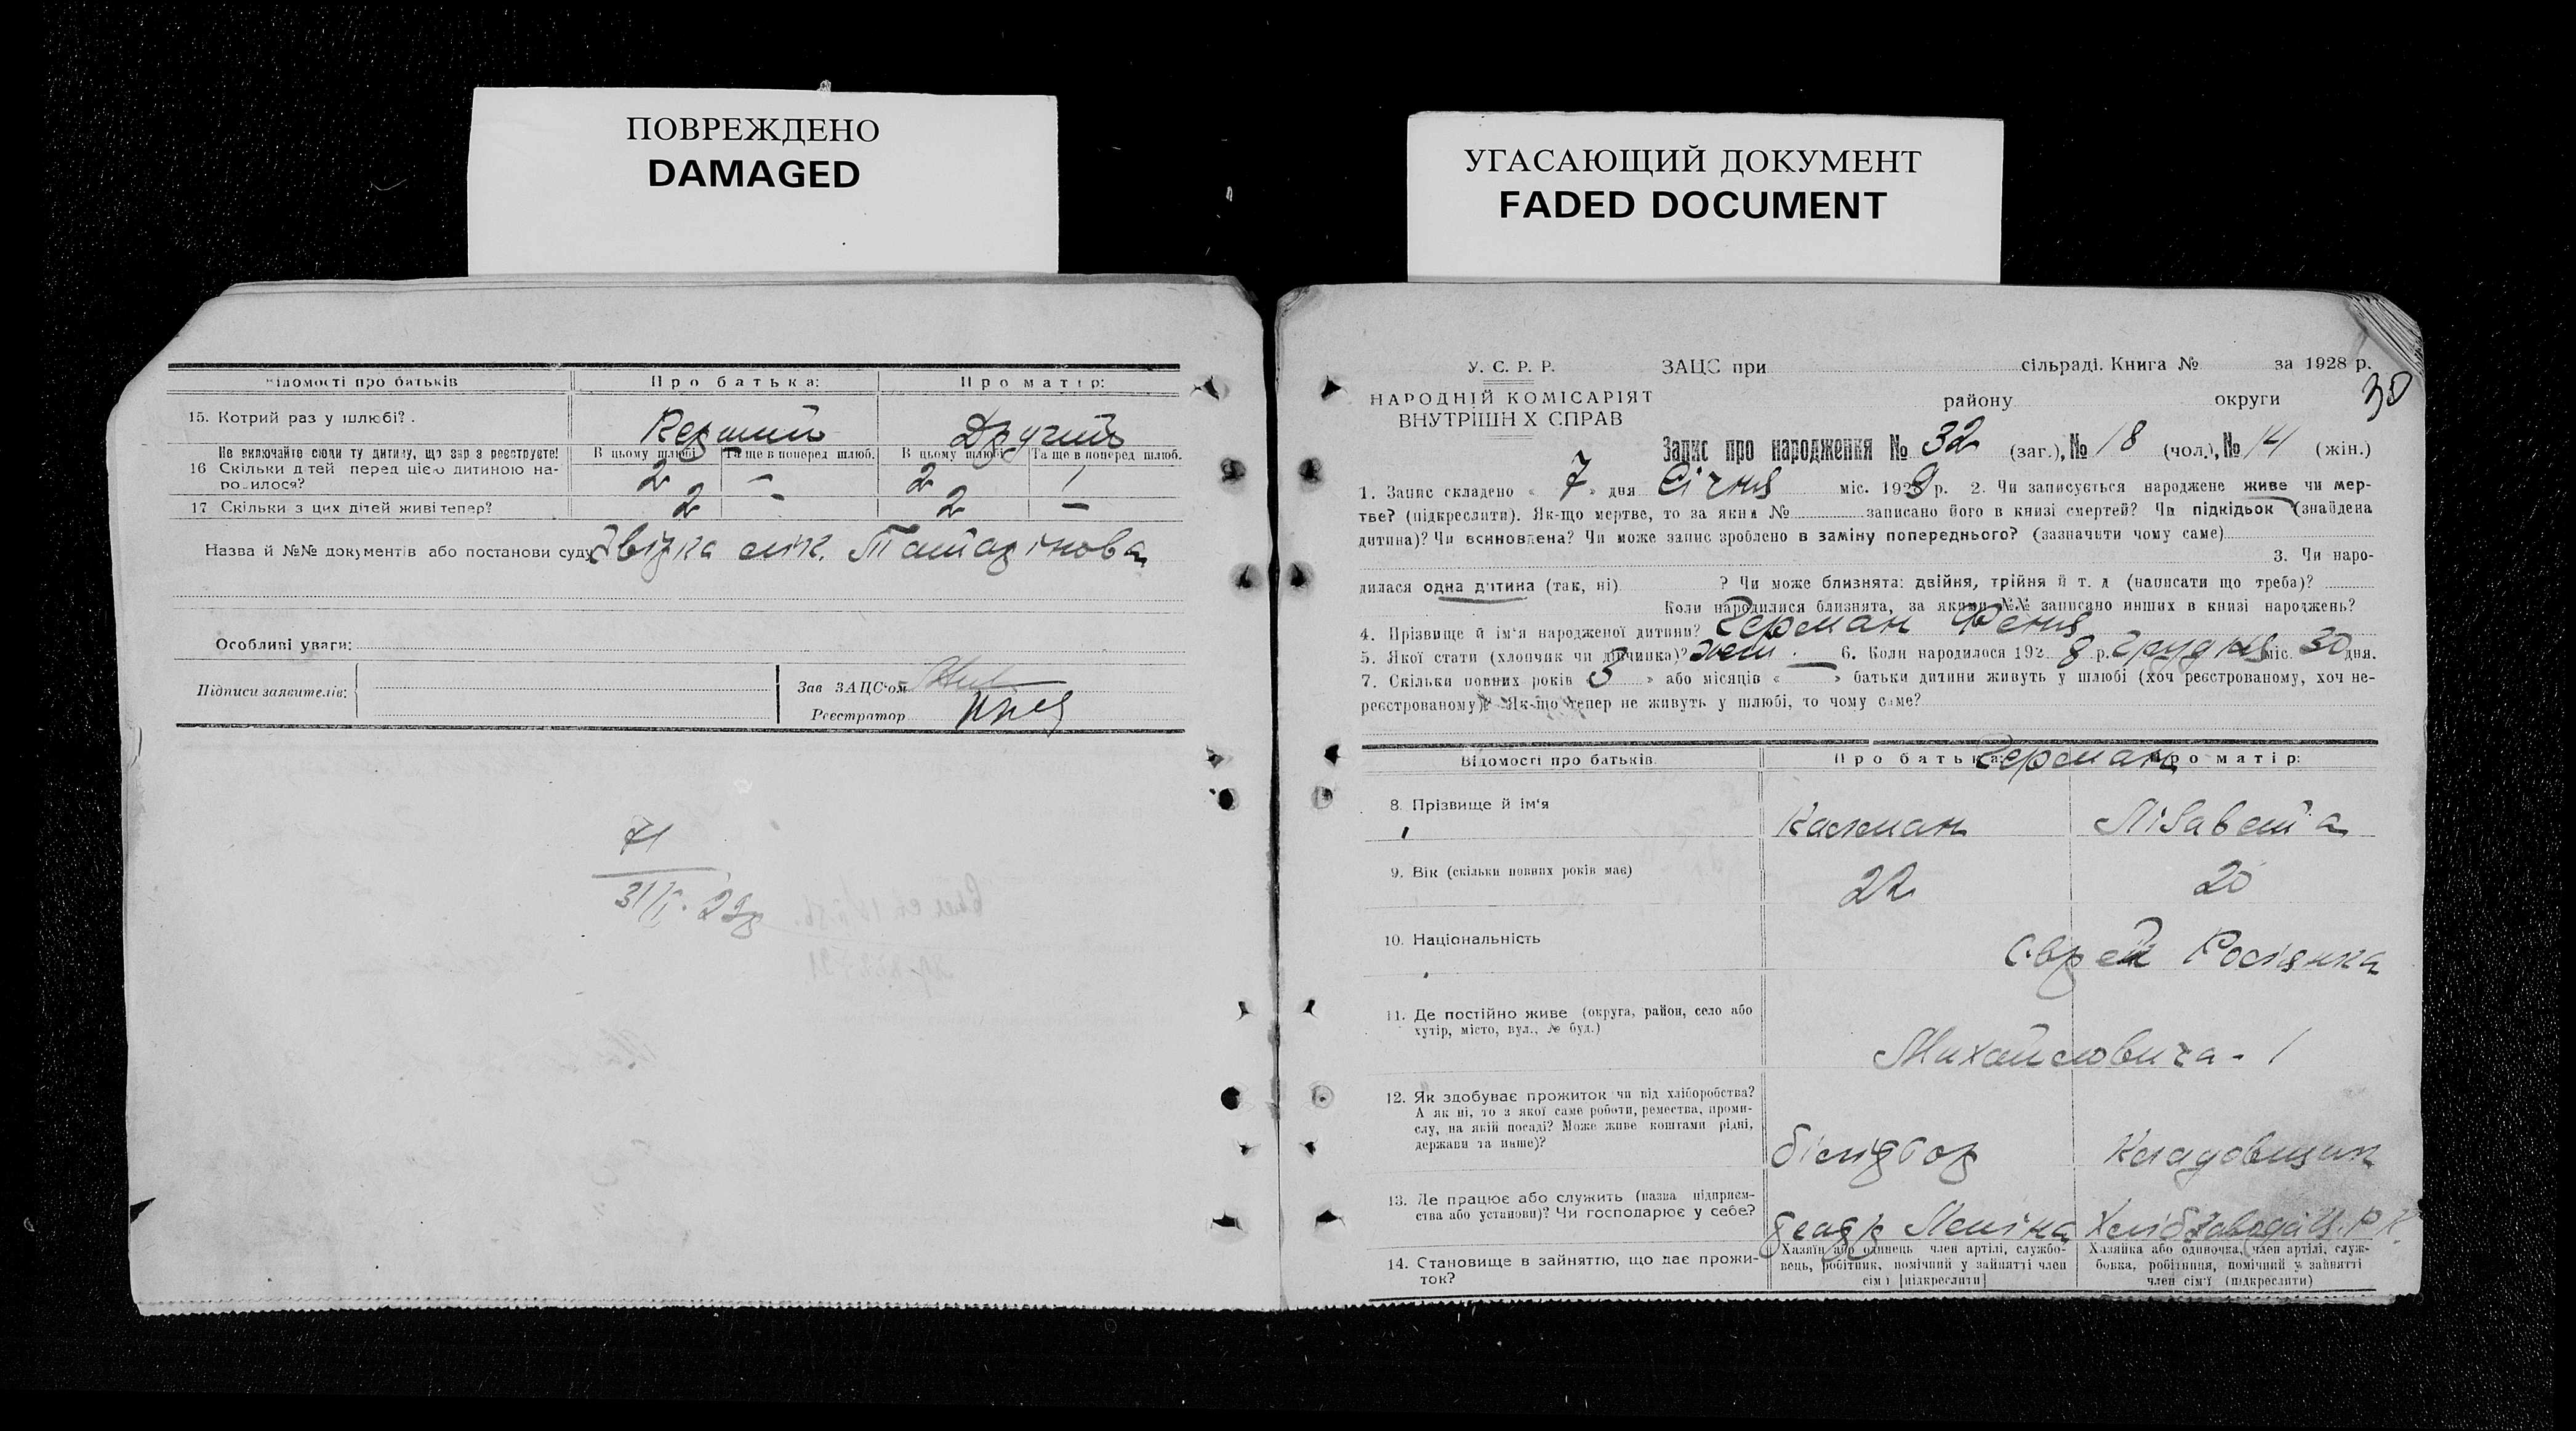 ПОВРЕЖДЕНО
DAMAGED
УГАСАЮЩИЙ ДОКУМЕНТ
FADED DOCUMENT
Відомості про батьків
Про батька:
Про матір:
15. Котрий раз у шлюбі?
Первший
Другий
Не включайте сюди ту дитину, що зар з реєструєте!
В цьому шлюбі
Та ще в поперед шлюб.
В цьому шлюбі
Та ще в поперед шлюб.
16 Скільки дітей перед цією дитиною на-
родилося?
2 – 2 1
17 Скільки з цих дітей живі тепер?
2 – 2 –
Назва й №№ документів або постанови суду Звірка
Особливі уваги:
Підписи заявителів:
Зав ЗАЦС'ом
Реєстратор
71
У. С. Р. Р.
НАРОДНІЙ КОМІСАРІЯТ
ВНУТРІШН Х СПРАВ
ЗАЦС при сільраді. Книга № за 1928 р.
30
району округи
Запис про народження № 32 (заг.), № 18 (чол.), № 14 (жін.)
1. Запис складено « 7 » дня Січня міс. 1929 р. 2. Чи записується народжене живе чи мер-
тве? (підкреслити). Як-що мертве, то за яким № записано його в книзі смертей? Чи підкідьок (знайдена
дитина)? Чи всиновлена? Чи може запис зроблено в заміну попереднього? (зазначити чому саме)
3. Чи наро-
дилася одна дитина (так, ні) ? Чи може близнята: двійня, трійня й т. д (написати що треба)?
Коли народилися близнята, за якими №№ записано инших в книзі народжень?
4. Прізвище й ім'я народженої дитини? Герман Феня
5. Якої стати (хлопчик чи дівчинка)? жен. 6. Коли народилося 192 8 р. Грудня міс 30 дня.
7. Скільки повних років 3 » або місяців « — » батьки дитини живуть у шлюбі (хоч реєстрованому, хоч не-
реєстрованому)? Як-що тепер не живуть у шлюбі, то чому саме?
Відомості про батьків
Про батька:
Про матір:
Герман
8. Прізвище й ім'я
Калман
Лізавета
9. Вік (скільки повних років має)
22
20
10. Національність
Єврей Росіянка
11. Де постійно живе (округа, район, село або
хутір, місто, вул., № буд.)
Михайловича - 1
12. Як здобуває прожиток чи від хліборобства?
А як ні, то з якої саме роботи, ремества, проми-
слу, на якій посаді? Може живе коштами рідні,
держави та инше)?
білядвор
Кладовщик
13. Де працює або служить (назва підприєм-
ства або установи)? Чи господарює у себе?
театр Леніна
Хлібзавод Ц. Р. К.
14. Становище в зайняттю, що дає прожи-
ток?
Хазяїн або одинець член артілі, службо-
вець, робітник, помічний у зайнятті член
сім'ї [підкреслити]
Хазяйка або одиночка, член артілі, служ-
бовка, робітниця, помічний у зайнятті
член сім'ї (підкреслити)